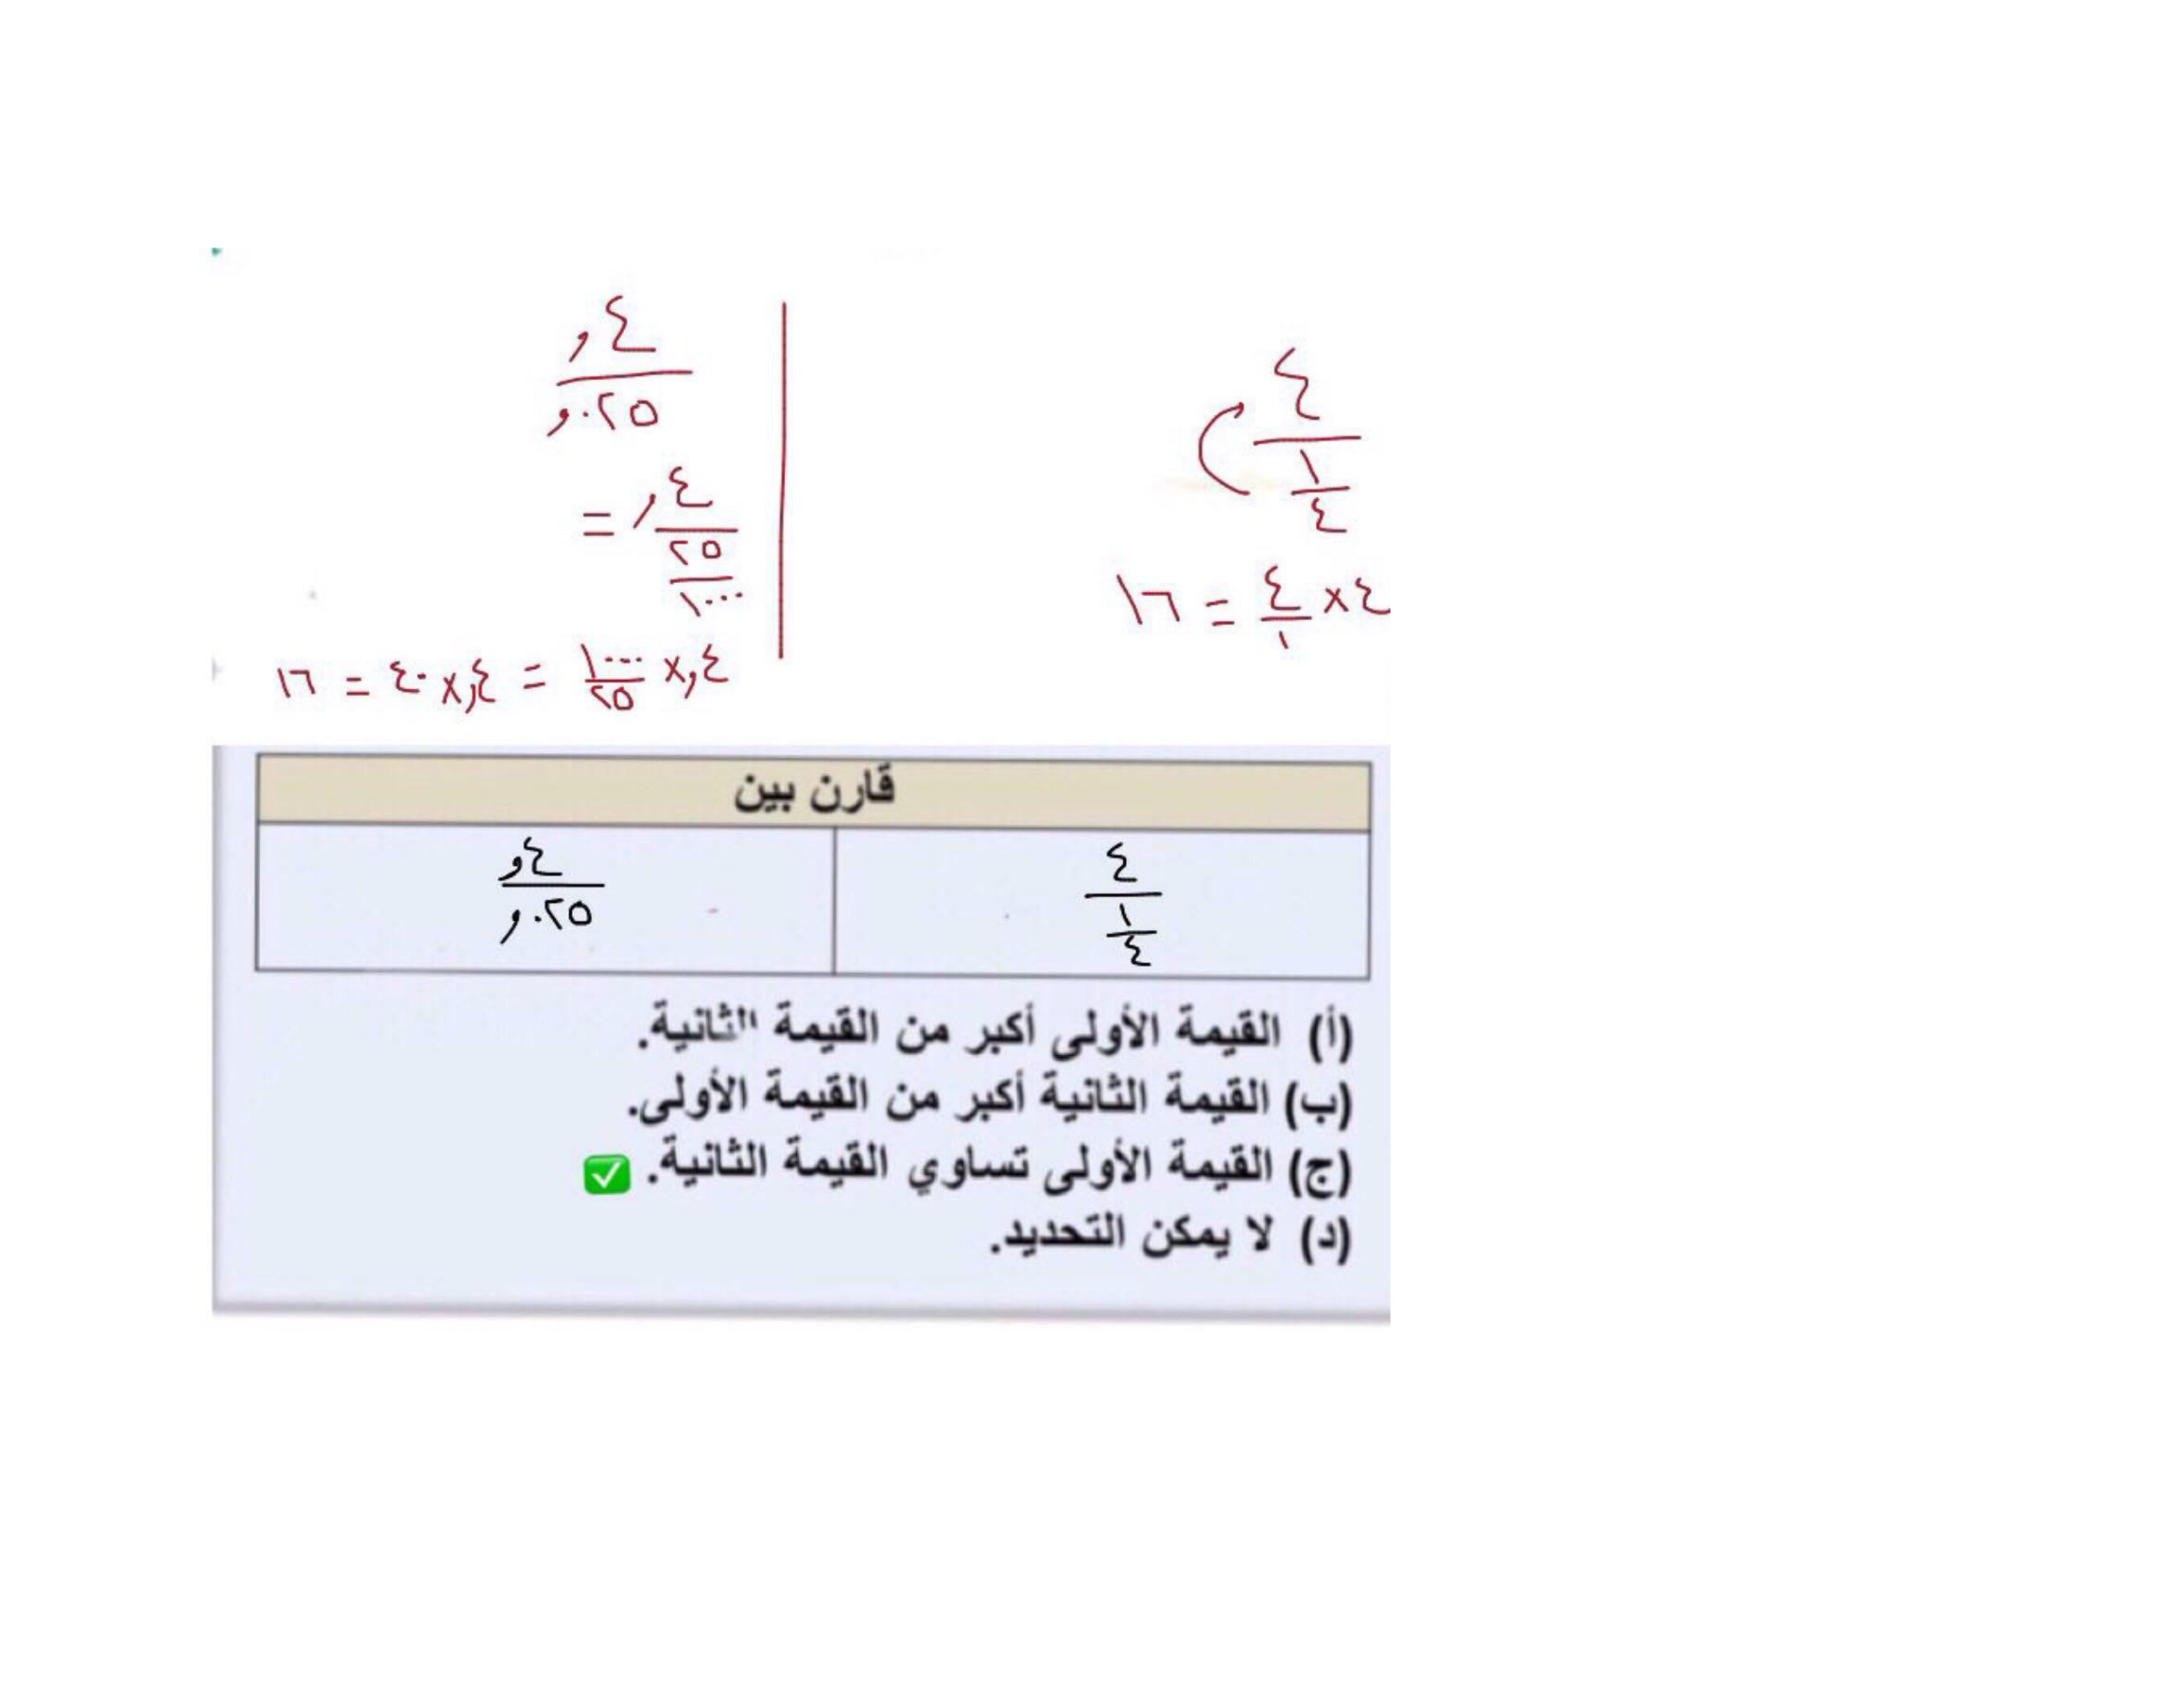 ٤
١
٤
٤×٤/١ = ١٦
,٤
,٠٢٥
= ,٤
٢٥
١٠٠٠
,٤ × ١٠٠٠/٢٥ = ,٤ × ٤٠ = ١٦
قارن بين
٤
١
٤
,٤
,٠٢٥
(أ) القيمة الأولى أكبر من القيمة الثانية.
(ب) القيمة الثانية أكبر من القيمة الأولى.
(ج) القيمة الأولى تساوي القيمة الثانية. ✅
(د) لا يمكن التحديد.